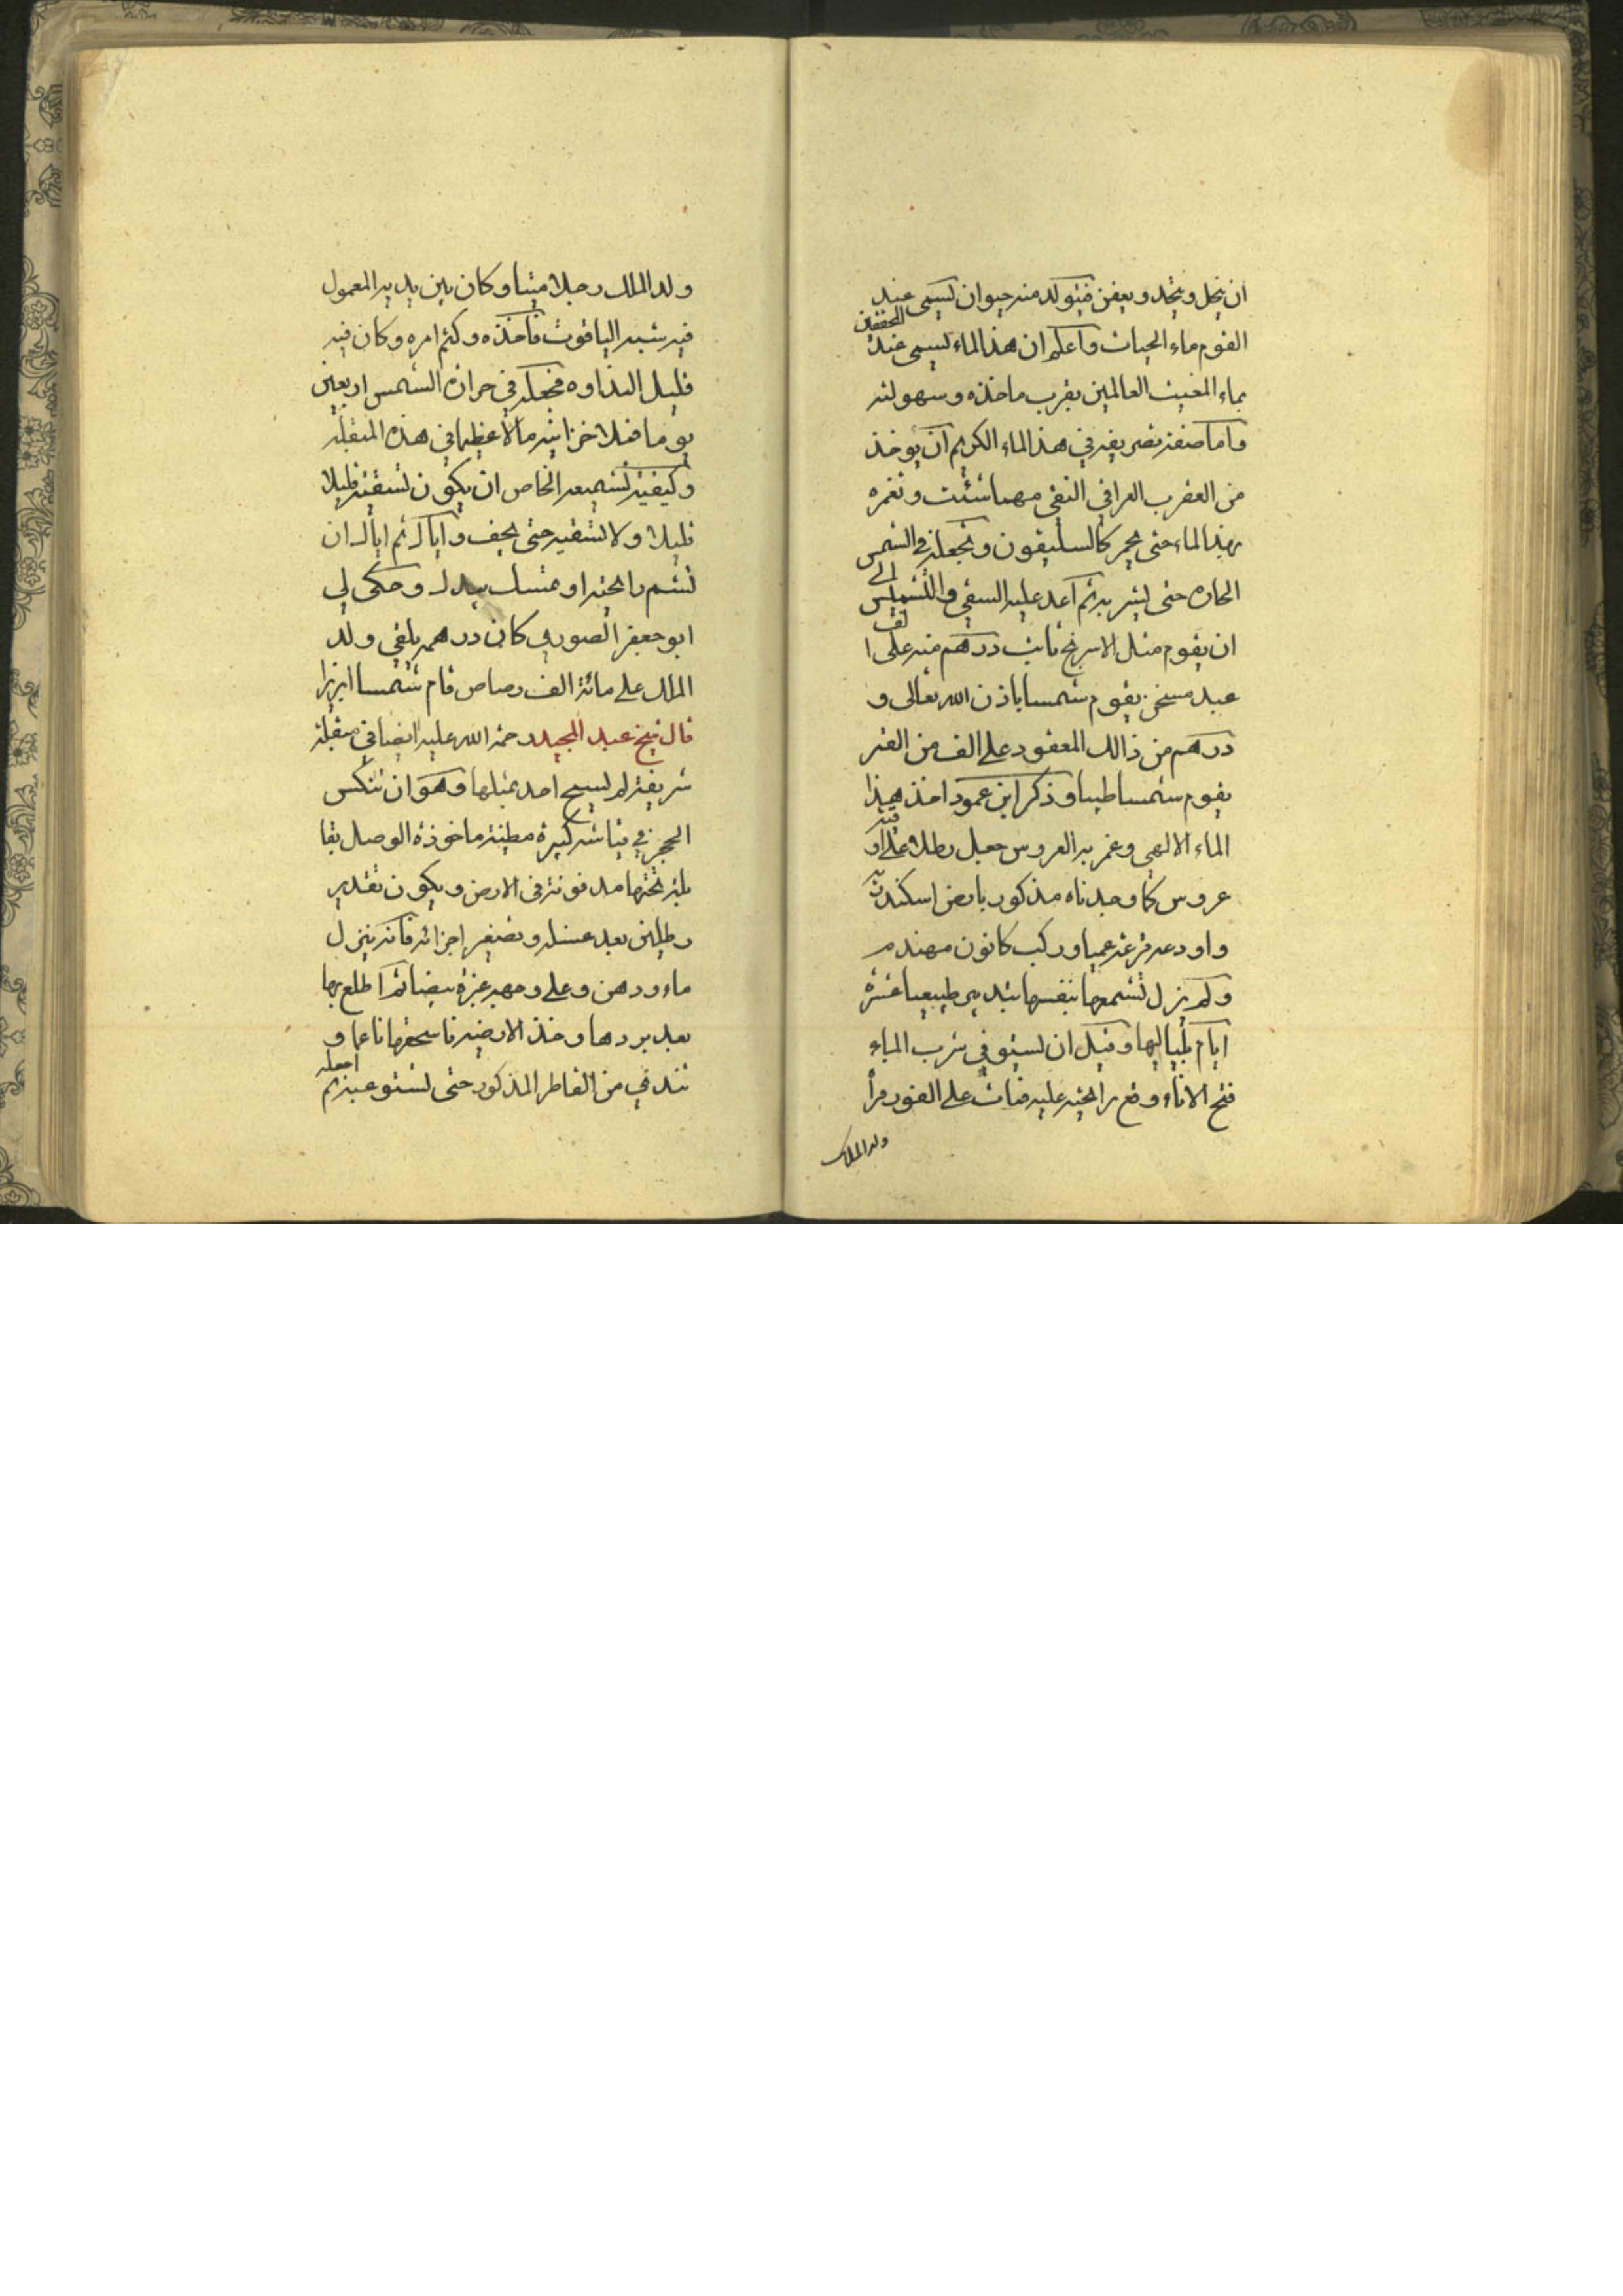 ان ينحل ويتحد ويعفن فيتولد منه حيوان يسمى عند
القوم ماء الحيات واعلم ان هذا الماء يسمى عند المحققين
بماء المغيث العالمين بقرب ماخذه وسهولته
واما صفة تصريفه في هذا الماء الكريم ان يوخذ
من العقرب العراقي النقي مهما شئت وتغمره
بهذا الماء حتى يحمر كالسليقون وتجعله في الشمس
الحاره حتى يشربه ثم اعد عليه السقي والتشميس الى
ان يقوم مثل الاسرنج نايب درهم منه على الف
عبد مسخن يقوم شمسا باذن الله تعالى و
درهم من ذالك المعقود على الف من القمر
يقوم شمسا طيبا وذكر ابن عمود اخذ هذا
الماء الالهي وغمر به العروس جعل رطلا على اوقية
عروس كما وجدناه مذكور بارض اسكندرية
واودعه قرعة عميا وركب كانون مهندم
ولم يزل تشمعها بنفسها بتدبير طبيعيا عشرة
ايام بلياليها وقبل ان يستوفي شرب الماء
فتح الاناء وقع رايحته عليه فمات على الفور فرأ
ولد الملك
ولد الملك رجلا ميتا وكان بين يديه المعمول
فيه شبه الياقوت فاخذه وكتم امره وكان فيه
قليل النداوه فجعله في حرارة الشمس اربعين
يوما فلا خزاينه مالا عظيما في هذه المثقلة
وكيفية تشميعه الخاص ان يكون تسقيته قليلا
قليلا ولا تسقيه حتى يجف واياك ثم اياك ان
تشم رايحته او تمسك بيدك وحكى لي
ابو جعفر الصوري كان درهمه يلقي ولد
الملك على مائة الف رصاص قام شمسا ابريزا
قال شيخ عبد المجيد رحمة الله عليه ايضا في مثقلة
شريفة لم يسبح احد بمثلها وهو ان تنكس
الحجر في قياشه كبيرة مطينة ماخوذة الوصل بقا
بلة تحتها مدفونة في الارض ويكون تقدير
رطلين بعد غسله وتصغير اجزائه فانه ينزل
ماء ودهن وعلى وجهه غبرة بيضا ثم اطلع بها
بعد بردها وخذ الارضية فاسحقها ناعما و
تندي من القاطر المذكور حتى تستوعبه ثم اجعله